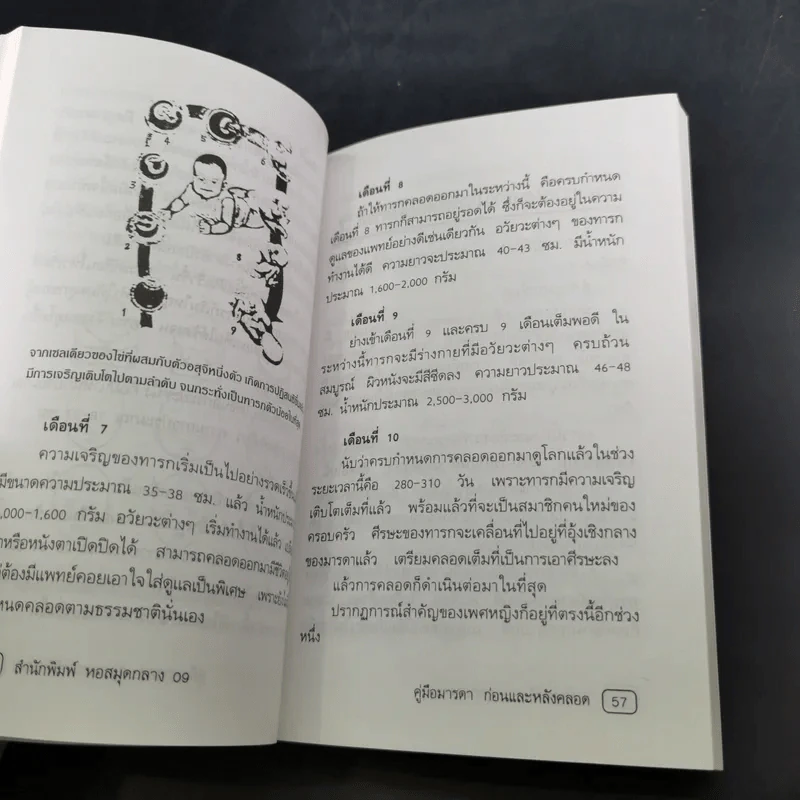 1
2
3
4
5
6
8
9
จากเซลเดียวของไข่ที่ผสมกับตัวอสุจิหนึ่งตัว เกิดการปฏิสนธิ
มีการเจริญเติบโตไปตามลำดับ จนกระทั่งเป็นทารกตัวน้อยในที่สุด
เดือนที่ 7
ความเจริญของทารกเริ่มเป็นไปอย่างรวดเร็วขึ้น
มีขนาดความประมาณ 35-38 ซม. แล้ว น้ำหนักประมาณ
,000-1,600 กรัม อวัยวะต่างๆ เริ่มทำงานได้แล้ว
าหรือหนังตาเปิดปิดได้ สามารถคลอดออกมามีชีวิต
ต้องมีแพทย์คอยเอาใจใส่ดูแลเป็นพิเศษ เพราะยังไม่
หนดคลอดตามธรรมชาตินั่นเอง
สำนักพิมพ์ หอสมุดกลาง 09
เดือนที่ 8
ถ้าให้ทารกคลอดออกมาในระหว่างนี้ คือครบกำหนด
เดือนที่ 8 ทารกก็สามารถอยู่รอดได้ ซึ่งก็จะต้องอยู่ในความ
ดูแลของแพทย์อย่างดีเช่นเดียวกัน อวัยวะต่างๆ ของทารก
ทำงานได้ดี ความยาวจะประมาณ 40-43 ซม. มีน้ำหนัก
ประมาณ 1,600-2,000 กรัม
เดือนที่ 9
ย่างเข้าเดือนที่ 9 และครบ 9 เดือนเต็มพอดี ใน
ระหว่างนี้ทารกจะมีร่างกายที่มีอวัยวะต่างๆ ครบถ้วน
สมบูรณ์ ผิวหนังจะมีสีซีดลง ความยาวประมาณ 46-48
ซม. น้ำหนักประมาณ 2,500-3,000 กรัม
เดือนที่ 10
นับว่าครบกำหนดการคลอดออกมาดูโลกแล้วในช่วง
ระยะเวลานี้คือ 280-310 วัน เพราะทารกมีความเจริญ
เติบโตเต็มที่แล้ว พร้อมแล้วที่จะเป็นสมาชิกคนใหม่ของ
ครอบครัว ศีรษะของทารกจะเคลื่อนที่ไปอยู่ที่อุ้งเชิงกลาง
ของมารดาแล้ว เตรียมคลอดเต็มที่เป็นการเอาศีรษะลง
แล้วการคลอดก็ดำเนินต่อมาในที่สุด
ปรากฏการณ์สำคัญของเพศหญิงก็อยู่ที่ตรงนี้อีกช่วง
หนึ่ง
คู่มือมารดา ก่อนและหลังคลอด 57